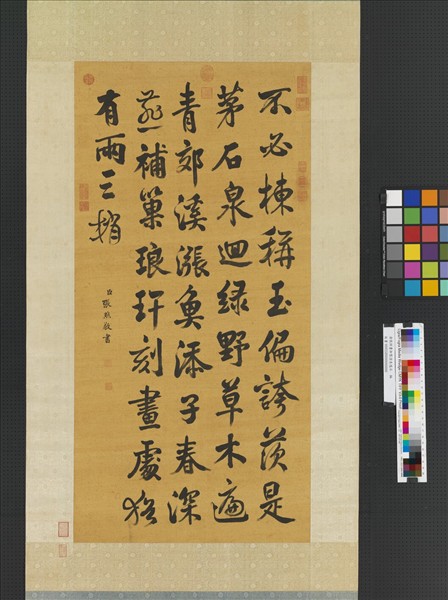 不必棟稱玉偏誇茨是
茅石泉迴綠野草木遍
青郊溪漲魚添子春深
燕補巢琅玕刻畫處猶
有兩三梢
臣張照敬書